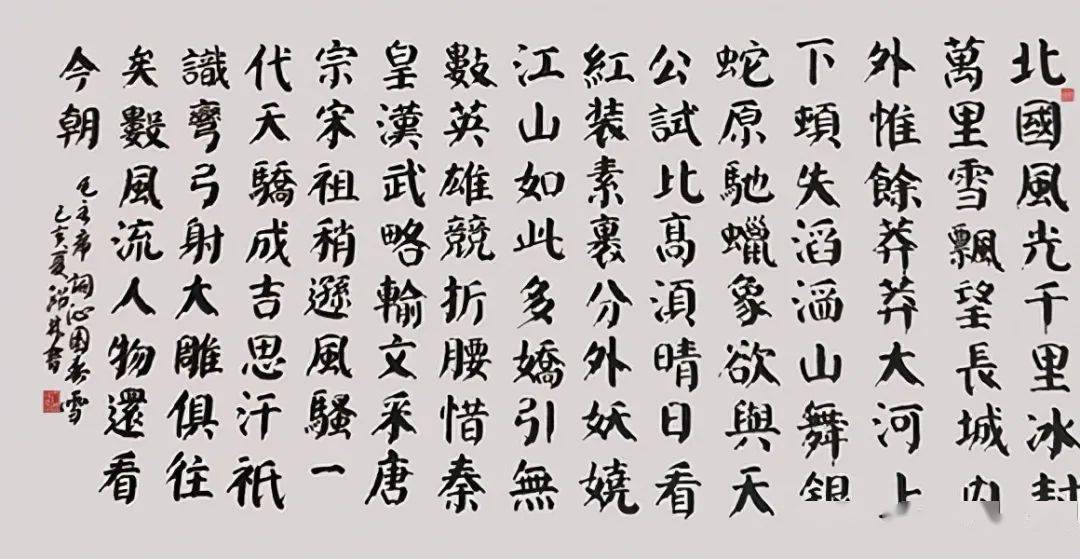 北國風光千里冰封
萬里雪飄望長城内
外惟餘莽莽大河上
下頓失滔滔山舞銀
蛇原馳蠟象欲與天
公試比高須晴日看
紅装素裹分外妖嬈
江山如此多嬌引無
數英雄競折腰惜秦
皇漢武略輸文采唐
宗宋祖稍遜風騷一
代天驕成吉思汗祇
識彎弓射大雕俱往
矣數風流人物還看
今朝
毛主席詞沁園春雪
己亥夏書